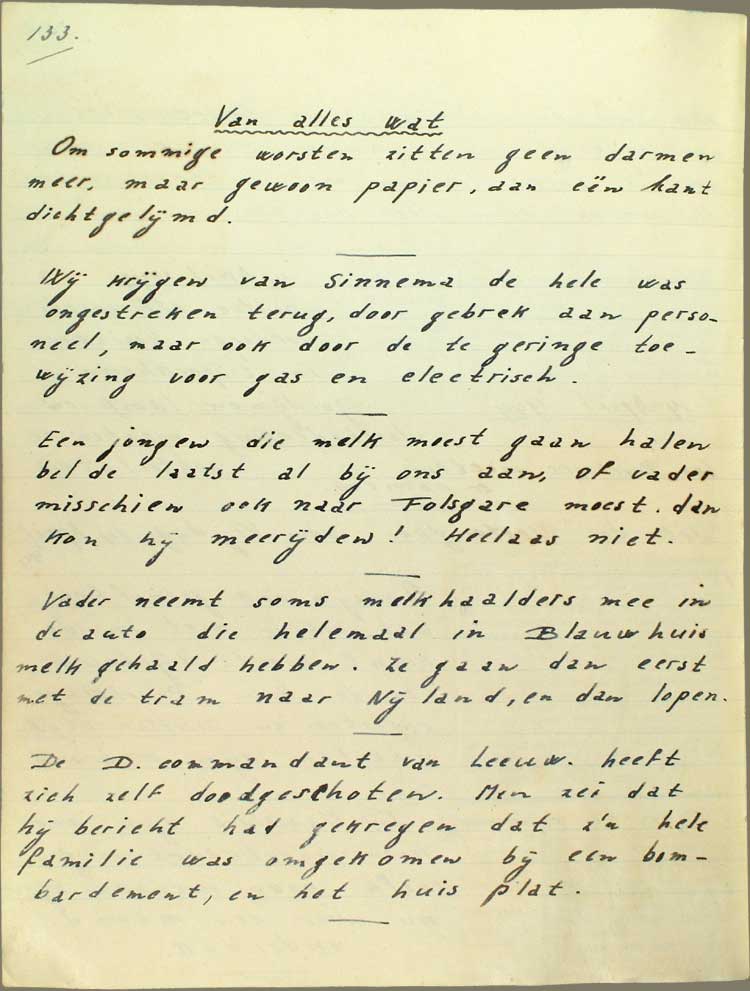 133.
Van alles wat
Om sommige worsten zitten geen darmen
meer, maar gewoon papier, aan eën kant
dichtgelijmd.
Wij krijgen van Sinnema de hele was
ongestreken terug, door gebrek aan perso-
neel, maar ook door de te geringe toe-
wijzing voor gas en electrisch.
Een jongen die melk moest gaan halen
belde laatst al bij ons aan, of vader
misschien ook naar Folsgare moest. dan
kon hij meerijden! Heelaas niet.
Vader neemt soms melkhaalders mee in
de auto die helemaal in Blauwhuis
melk gehaald hebben. Ze gaan dan eerst
met de tram naar Nijland, en dan lopen.
De D. commandant van Leeuw. heeft
zich zelf doodgeschoten. Men zei dat
hij bericht had gekregen dat z'n hele
familie was omgekomen bij een bom-
bardement, en het huis plat.